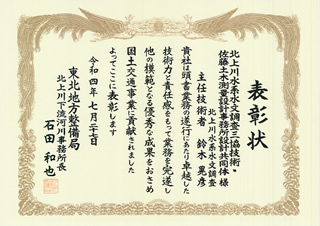 表彰状
北上川水系水文調査三協技術・
佐藤土木測量設計事務所設計共同体 様
北上川水系水文調査
主任技術者 鈴木 晃彦
貴社は頭書業務の遂行にあたり卓越した
技術力と責任感をもって業務を完遂し
他の模範となる優秀な成果をおさめ
国土交通事業に貢献されました
よってここに表彰します
令和四年七月二十七日
東北地方整備局
北上川下流河川事務所長
石田 和也